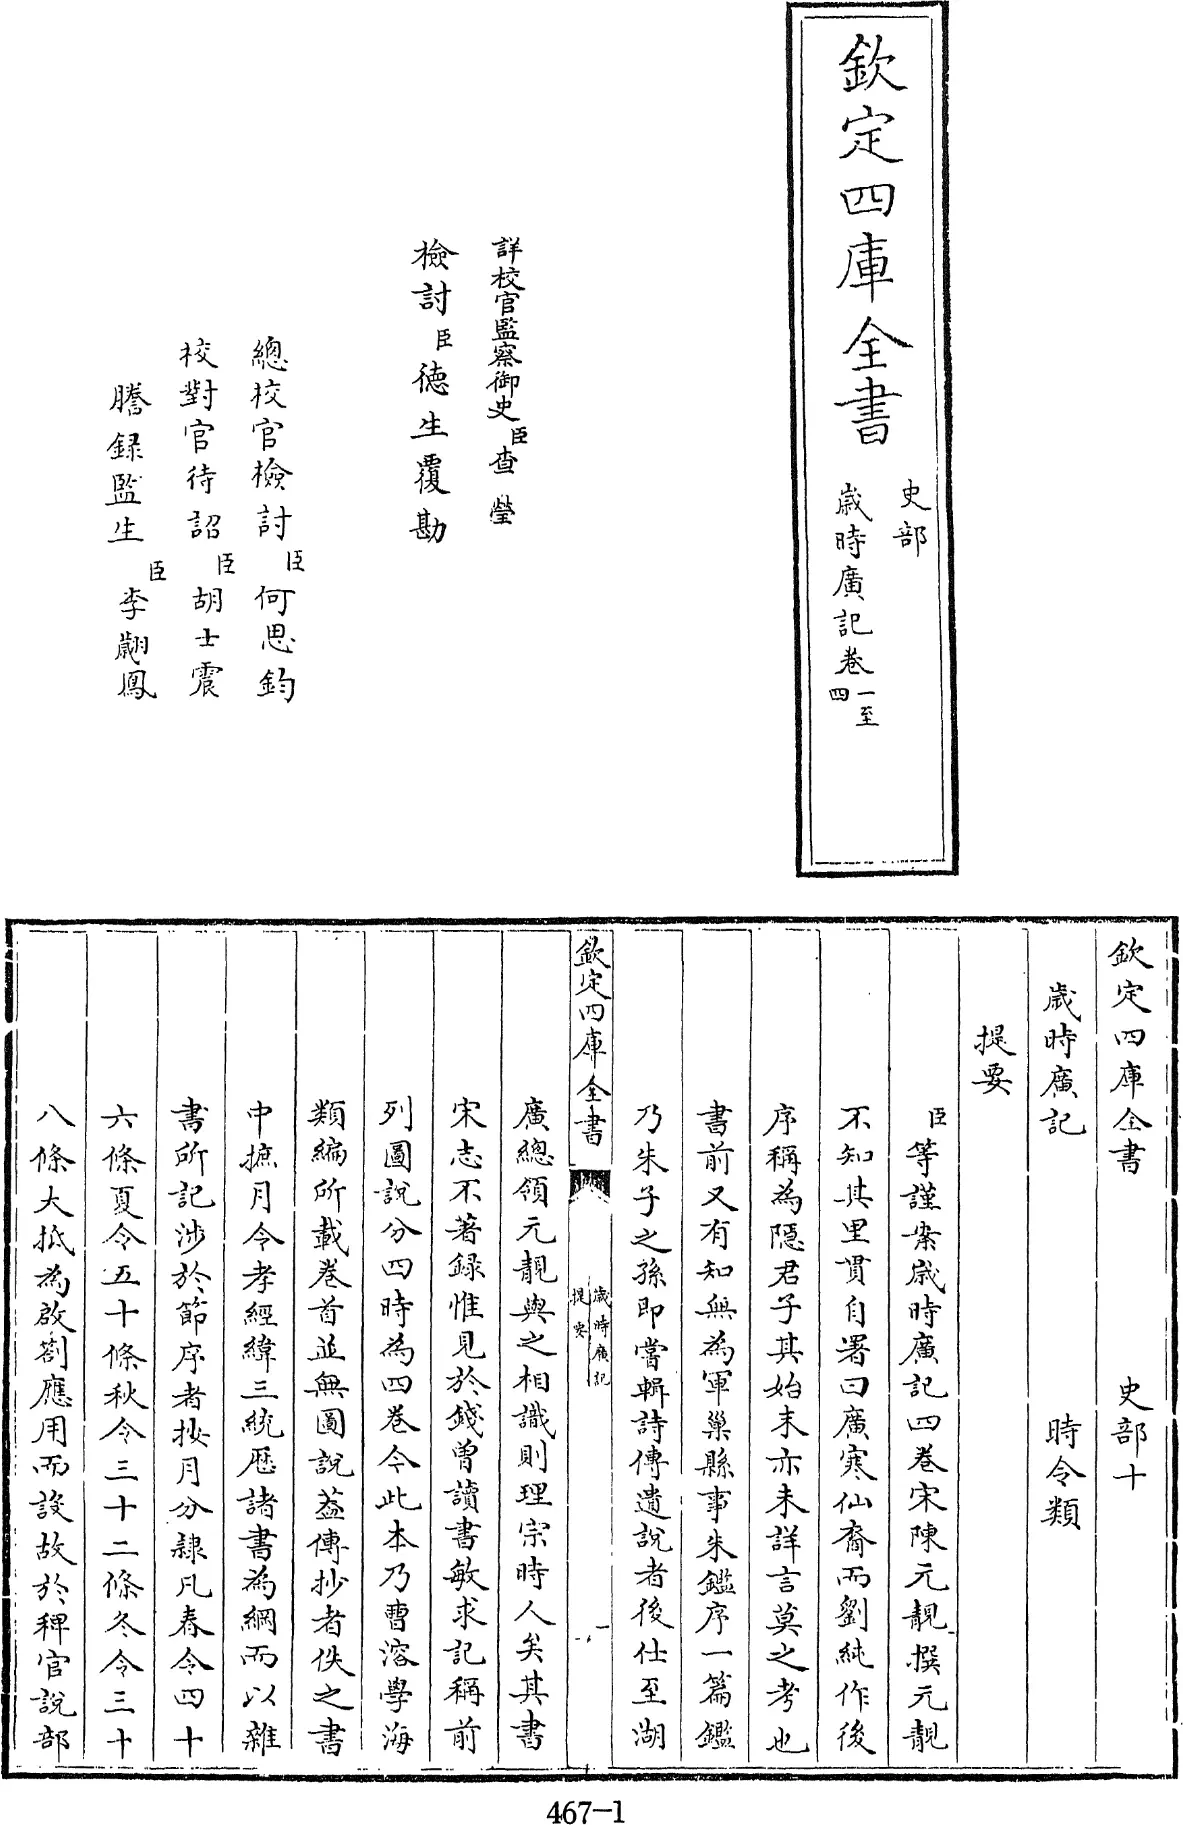 欽定四庫全書
史部
歲時廣記卷一至四
詳校官監察御史臣查瑩
檢討臣德生覆勘
總校官檢討臣何思鈞
校對官待詔臣胡士震
謄録監生臣李翽鳳
欽定四庫全書 史部十
歲時廣記 時令類
提要
臣等謹案歲時廣記四卷宋陳元靚撰元靚
不知其里貫自署曰廣寒仙裔而劉純作後
序稱為隱君子其始末亦未詳言莫之考也
書前又有知無為軍巢縣事朱鑑序一篇鑑
乃朱子之孫即嘗輯詩傳遺說者後仕至湖
欽定四庫全書
歲時廣記
提要
一
廣總領元靚與之相識則理宗時人矣其書
宋志不著録惟見於錢曾讀書敏求記稱前
列圖說分四時為四卷今此本乃曹溶學海
類編所載卷首並無圖說葢傳抄者佚之書
中摭月令孝經緯三統歴諸書為綱而以雜
書所記涉於節序者按月分隷凡春令四十
六條夏令五十條秋令三十二條冬令三十
八條大抵為啟劄應用而設故於稗官說部
467-1